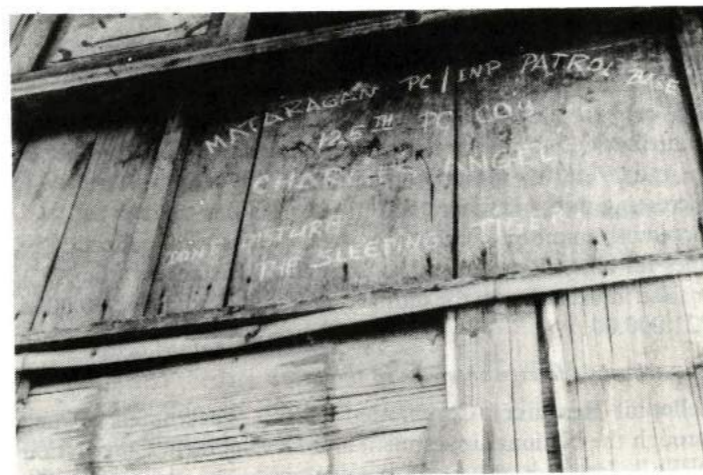 MATARAGAN PC/INP PATROL BASE
125TH PC COY
CHARLIE ANGEL
DONT DISTURB
THE SLEEPING TIGER